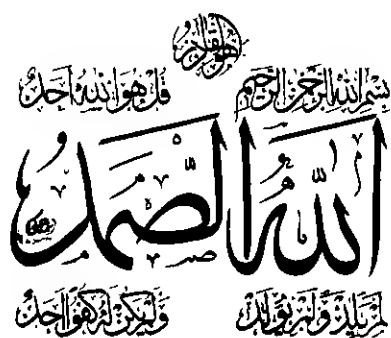 هو القادر
بسم الله الرحمن الرحيم قل هو الله احد
الله الصمد
لم يلد و لم يولد ولم يكن له كفوا احد